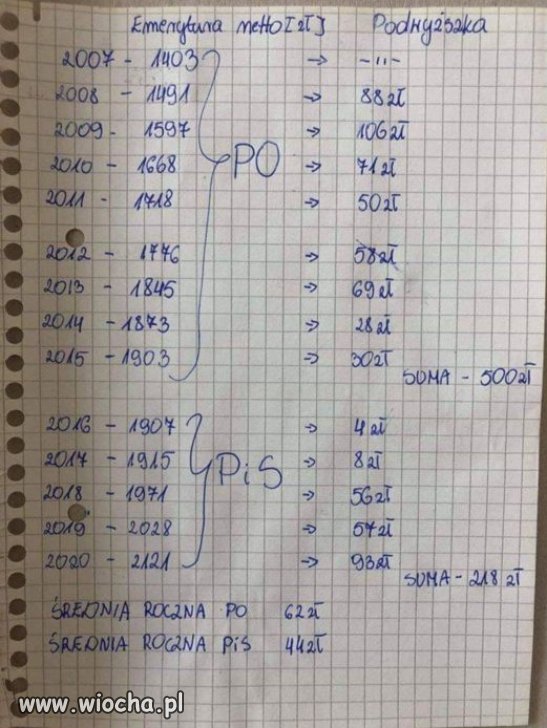 Emerytura netto [zł] Podwyższka
2007 - 1403 → -"-
2008 - 1491 → 88zł
2009 - 1597 → 106zł
2010 - 1668 → 71zł
2011 - 1718 → 50zł
PO
2012 - 1776 → 58zł
2013 - 1845 → 69zł
2014 - 1873 → 28zł
2015 - 1903 → 30zł
SUMA - 500zł
2016 - 1907 → 4zł
2017 - 1915 → 8zł
PiS
2018 - 1971 → 56zł
2019 - 2028 → 57zł
2020 - 2121 → 93zł
SUMA - 218 zł
ŚREDNIA ROCZNA PO 62zł
ŚREDNIA ROCZNA PiS 44zł
www.wiocha.pl